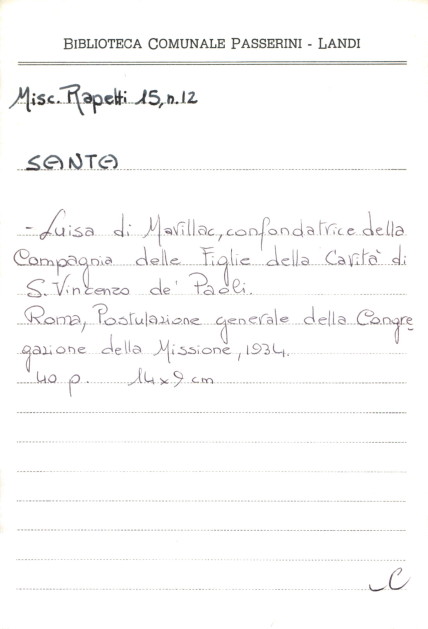 BIBLIOTECA COMUNALE PASSERINI - LANDI
Misc. Rapetti 15, n. 12
SANTA
- Luisa di Marillac, confondatrice della
Compagnia delle Figlie della Carità di
S. Vincenzo de' Paoli.
Roma, Postulazione generale della Congre
gazione della Missione, 1934.
40 p. 14 x 9 cm
C